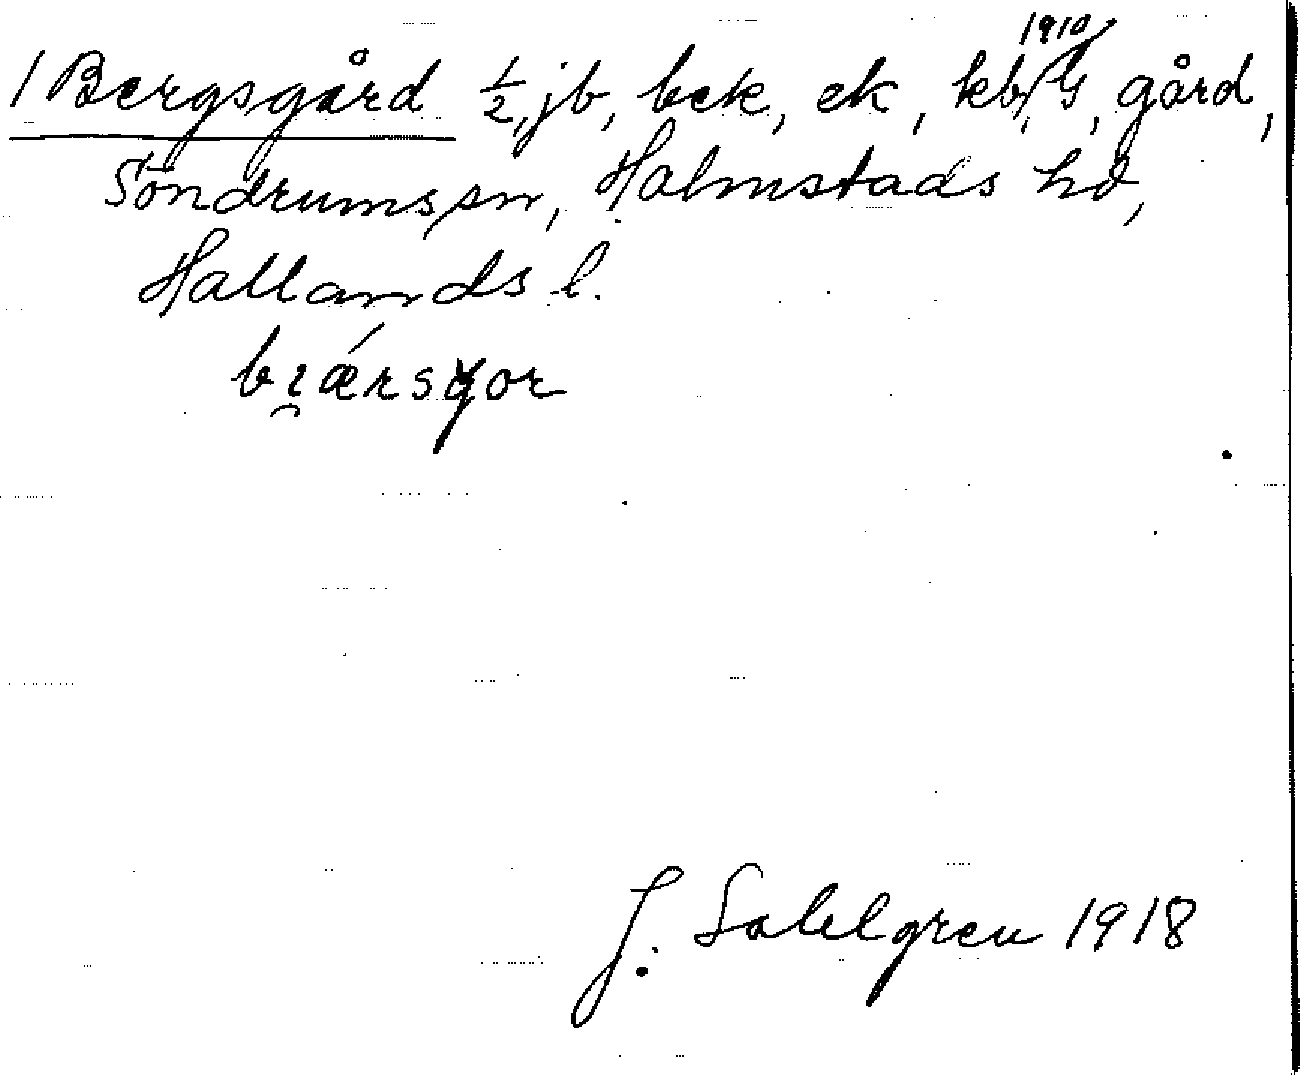 1910
1 Bergsgård ½, jb, bek, ek, kb, G, gård,
Söndrums sn, Halmstads hd,
Hallands l.
bi̯ǽrsgor
J. Sahlgren 1918